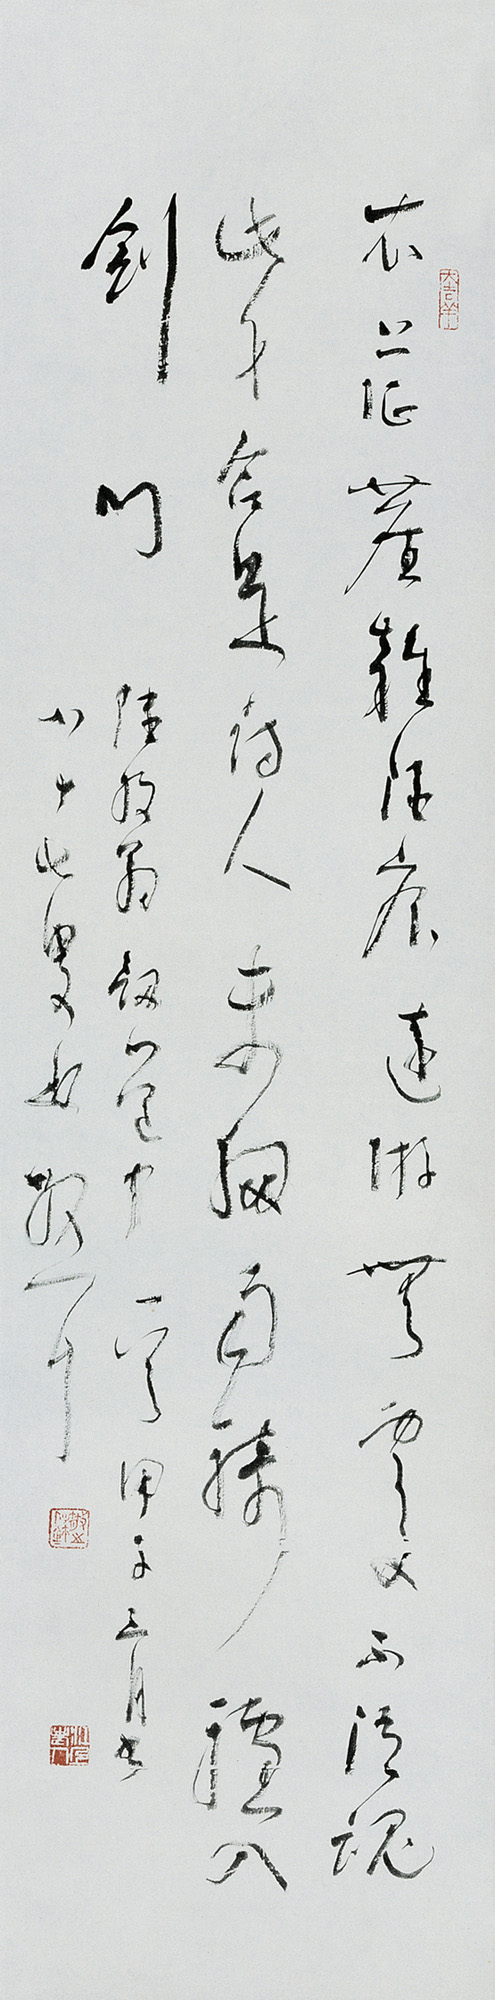 大吉羊
衣上征塵雜酒痕遠游無處不消魂
此身合是詩人未細雨騎驢入
劍門
陸放翁劍門道中一首甲子三月書
八十七叟林散耳